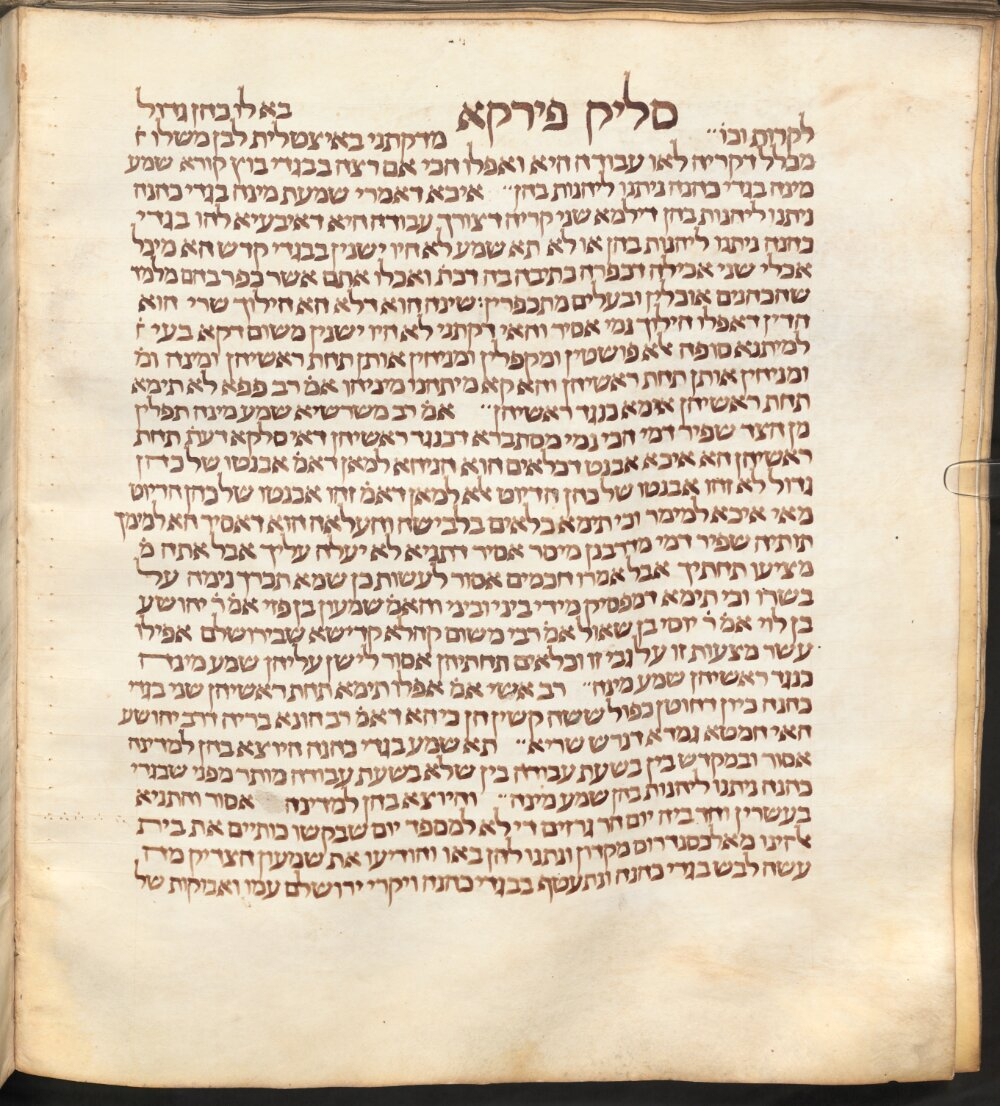 סליק פירקא בא לו כהן גדול
לקרות וכו׳ מדקתני באיצטלית לבן משלו
מכלל דקריה לאו עבודה היא ואפלו הכי אם רצה בבגדי בוץ קורא שמע
מינה בגדי כהנה ניתנו ליהנות בהן איכא דאמרי שמעת מינה בגדי כהנה
ניתנו ליהנות בהן דילמא שני קריה דצורך עבודה היא דאיבעיא להו בגדי
כהנה ניתנו ליהנות בהן או לא תא שמע לא היו ישנין בבגדי קדש הא מיכל
אכלי שני אכילה דכפרה כתיבה בה דכת׳ ואכלו אתם אשר כפר בהם מלמד
שהכהנים אוכלין ובעלים מתכפרין: שינה הוא דלא הא הילוך שרי הוא
הדין דאפלו הילוך נמי אסיר והאי דקתני לא היו ישנין משום דקא בעי
למיתנא סופה לא פושטין ומקפלין ומניחין אותן תחת ראשיהן ומינה ומ׳
ומניחין אותן תחת ראשיהן והא קא מיתהנו מיניהו אמ׳ רב פפא לא תימא
תחת ראשיהן אימא כנגד ראשיהן אמ׳ רב משרשיא שמע מינה תפלין
מן הצד שפיר דמי הכי נמי מסתברא דכנגד ראשיהן דאי סלקא דעת׳ תחת
ראשיהן הא איכא אבנט דכלאים הוא הניחא למאן דאמ׳ אבנטו של כהן
גדול לא זהו אבנטו של כהן הדיוט אלא למאן דאמ׳ זהו אבנטו של כהן הדיוט
מאי איכא למימר וכי תימא כלאים בלבישה והעלאה הוא דאסיר הא למימך
תותיה שפיר דמי מדרבנן מיסר אסיר דתניא לא יעלה עליך אבל אתה מ׳
מציעו תחתיך אבל אמרו חכמים אסור לעשות כן שמא תכרך נימה על
בשרו וכי תימא דמפסיק מידי ביני וביני והאמ׳ שמעון בן פזי אמ׳ ר׳ יהושע
בן לוי אמ׳ ר׳ יוסי בן שאול אמ׳ רבי משום קהלא קדישא שבירושלם אפילו
עשר מצעות זו על גבי זו וכלאים תחתיהן אסור לישן עליהן שמע מינה
כנגד ראשיהן שמע מינה רב אשי אמ׳ אפלו תימא תחת ראשיהן שני בגדי
כהנה כיון דחוטן כפול ששה קשין הן כי הא דאמ׳ רב הונא בריה דרב יהושע
האי חמטא גמדא דנרש שריא תא שמע בגדי כהנה היוצא בהן למדינה
אסור ובמקדש בין בשעת עבודה בין שלא בשעת עבודה מותר מפני שבגדי
כהנה ניתנו ליהנות בהן שמע מינה והיוצא בהן למדינה אסור והתניא
בעשרין וחד ביה יום הר גרזים די לא למספד יום שבקשו כותיים את בית
אלהינו מאלכסנדרוס מקדון ונתנו להן באו והודיעו את שמעון הצדיק מה
עשה לבש בגדי כהנה ונתעטף בבגדי כהנה ויקרי ירושלם עמו ואבוקות של